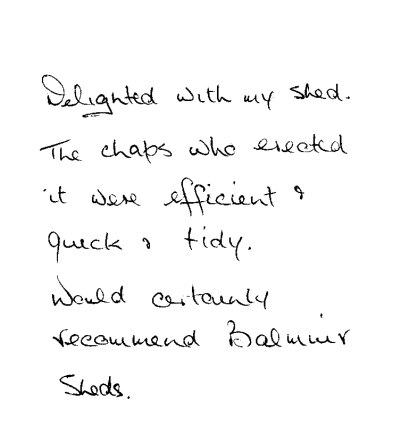 Delighted with my shed.
The chaps who erected
it were efficient &
quick & tidy.
Would certainly
recommend Balmuir
Sheds.